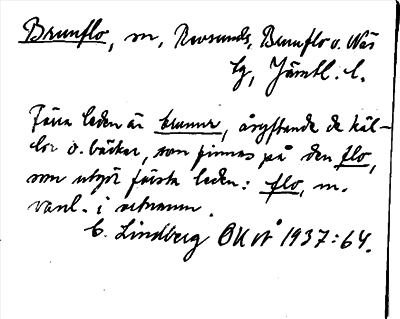 Brunflo, m, Revsunds, Brunflo o. Näs
tg, Jämtl. l.
Förra leden är brunnr, åsyftande de käl-
lor o. bäckar, som finnas på den flo,
som utgör sista leden: flo, m.
vanl. i ortnamn.
C. Lindberg OKÅ 1937:64.